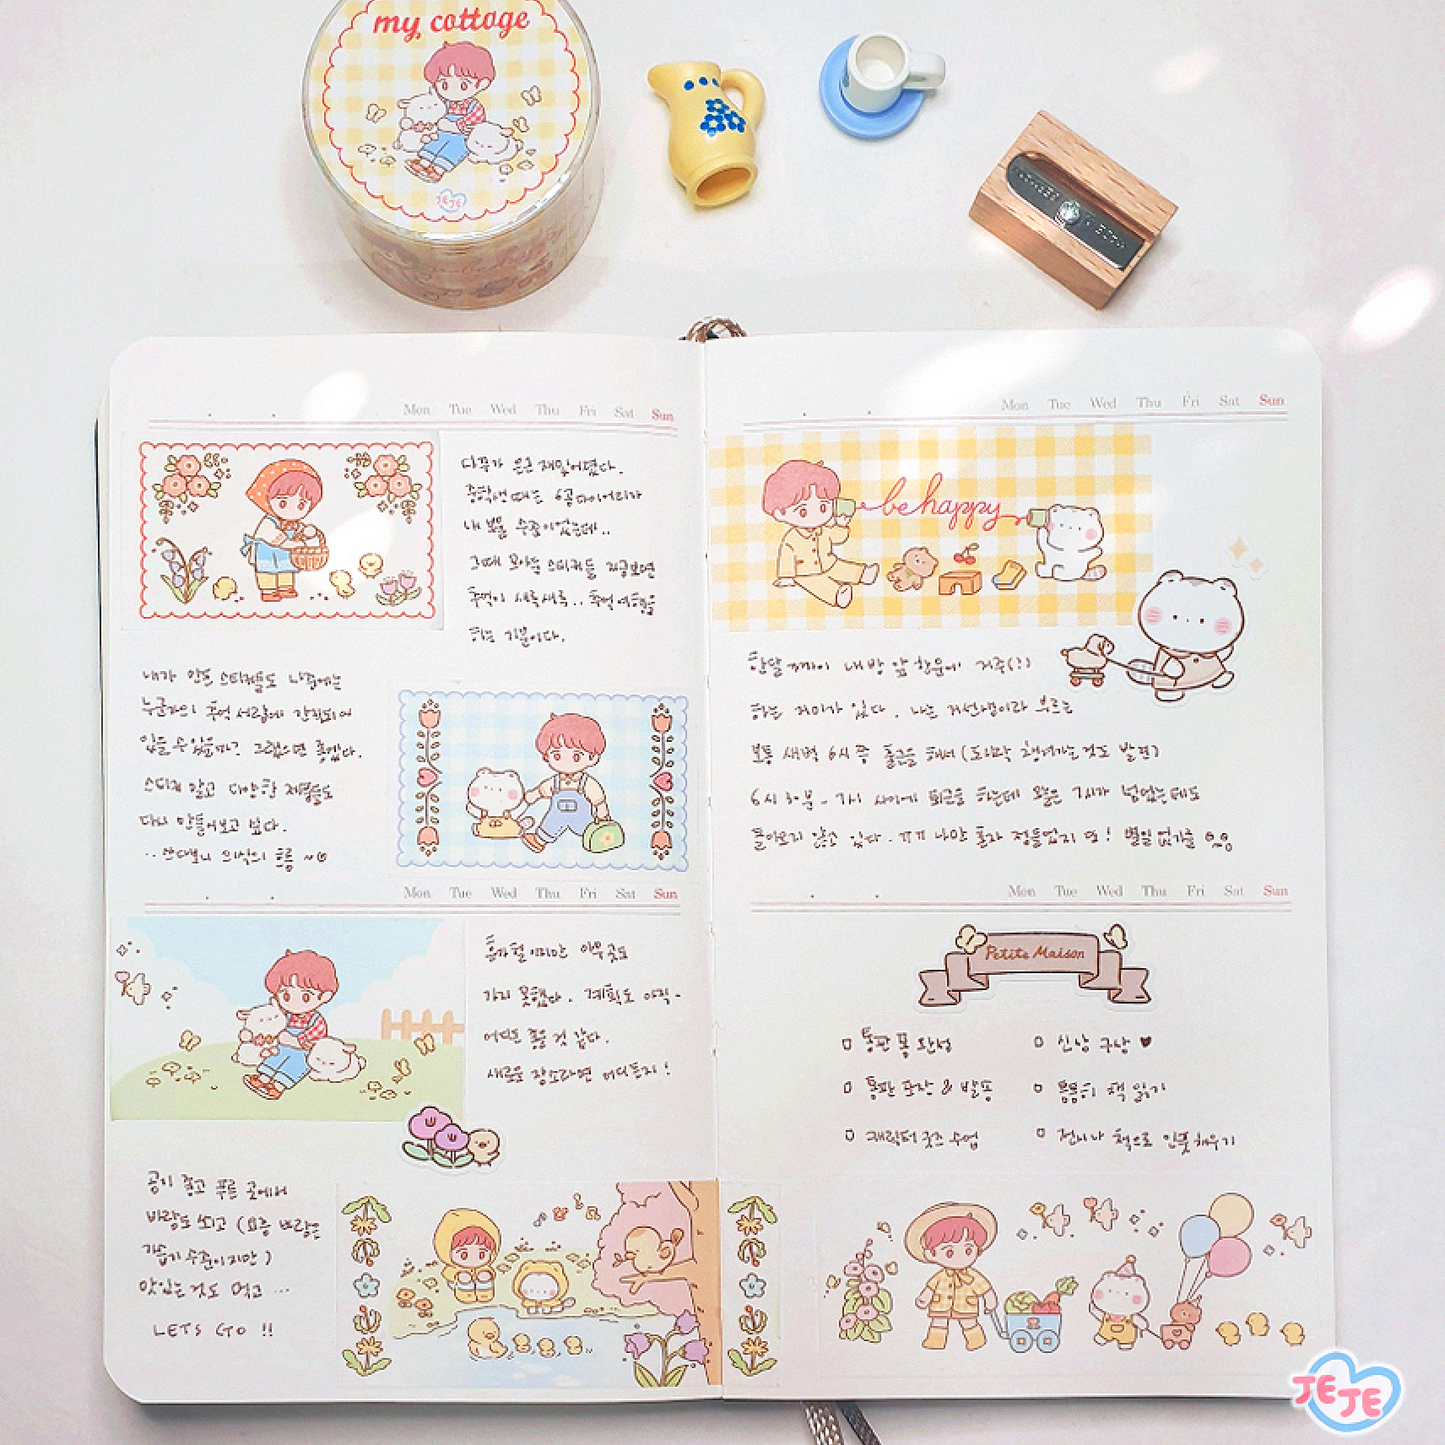 my cottage
JEJE
Mon Tue Wed Thu Fri Sat Sun
다꾸가 은근 재밌어졌다.
중학생 때는 6공다이어리가
내 보물 수준이었는데..
그때 모아둔 스티커들 지금보면
추억이 새록새록.. 추억여행을
하는 기분이다.
내가 만든 스티커들도 나중에는
누군가의 추억 서랍에 간직되어
있을 수 있을까? 그랬으면 좋겠다.
스티커 말고 다양한 제품들도
다시 만들어보고 싶다.
.. 쓰다보니 의식의 흐름 ~
Mon Tue Wed Thu Fri Sat Sun
휴가철이지만 아무곳도
가지 못했다. 계획도 아직-
어디든 좋을 것 같다.
새로운 장소라면 어디든지!
공기 좋고 푸른 곳에서
바람도 쐬고 (요즘 바람은
가습기 수준이지만)
맛있는 것도 먹고 ...
LETS GO !!
Mon Tue Wed Thu Fri Sat Sun
be happy
한달 째 내 방 앞 창문에 거주(?)
하는 거미가 있다. 나는 거선생이라 부르는
보통 새벽 6시 쯤 출근을 해서 (도시락 챙겨가는 것도 발견)
6시 30분 - 7시 사이에 퇴근을 하는데 오늘은 7시가 넘었는데도
돌아오지 않고 있다. ㅠㅠ 나만 혼자 정들었지 또! 별일 없기를
Mon Tue Wed Thu Fri Sat Sun
Petite Maison
통판 폼 완성
신상 구상 ♥
통판 포장 & 발송
틈틈히 책 읽기
캐릭터 굿즈 수업
전시나 책으로 인풋 채우기
JEJE